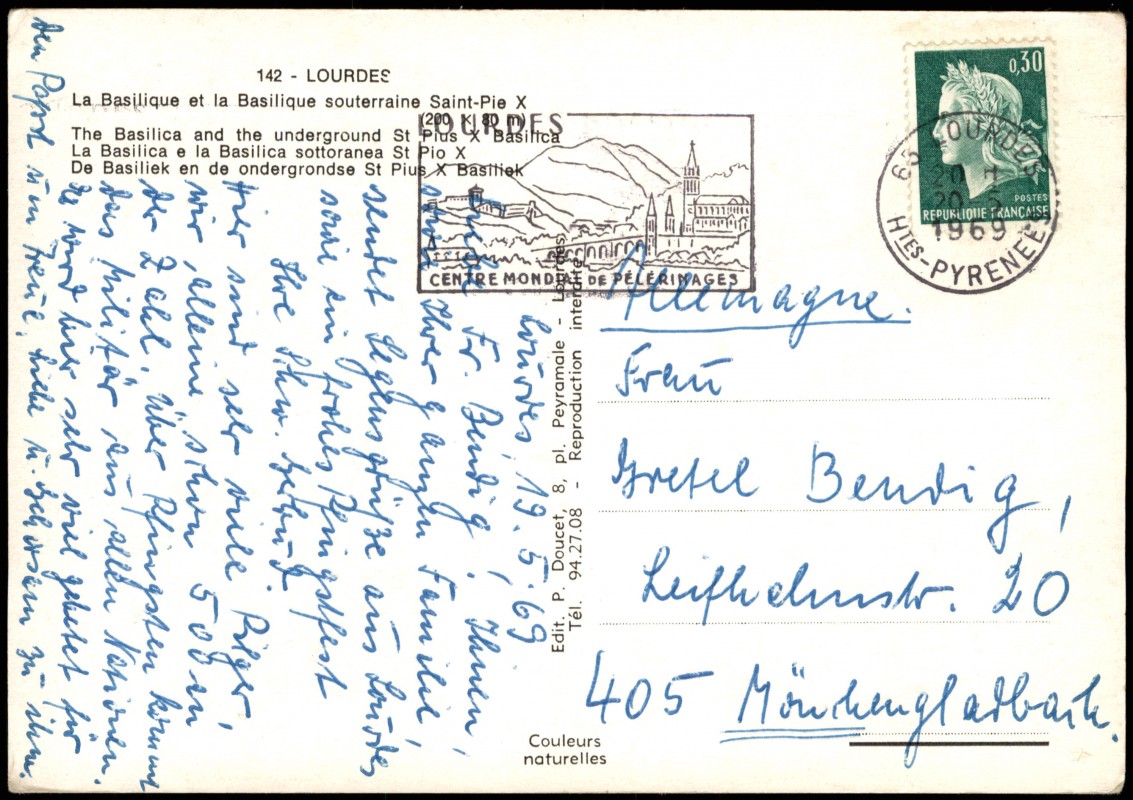 142 - LOURDES
La Basilique et la Basilique souterraine Saint-Pie X
(200 X 80 m)
The Basilica and the underground St Pius X Basilica
La Basilica e la Basilica sottoranea St Pio X
De Basiliek en de ondergrondse St Pius X Basiliek
LOURDES
CENTRE MONDIAL DE PÉLERINAGES
0,30
POSTES
REPUBLIQUE FRANÇAISE
65 LOURDES
20 H
20-5
1969
HTES-PYRENEES
Lourdes, 19.5.69
Fr. Bendig, Ihnen,
Ihrer ganzen Familie
sendet Segensgrüße aus Lourdes
sowie ein frohes Pfingstfest
Ihre Schw.
Hier sind sehr viele Pilger,
wir alleine schon 500 an
der Zahl, über Pfingsten kommt
das Militär aus allen Nationen.
Es wird hier sehr viel gebetet für
den Papst um Treue, Liebe u. Gehorsam zu ihm.
Edit. P. Doucet, 8, pl. Peyramale - Lourdes
Tél. 94.27.08 - Reproduction interdite
Couleurs
naturelles
Allemagne.
Frau
Gretel Bendig,
Leifhelmstr. 20
405 Mönchengladbach.